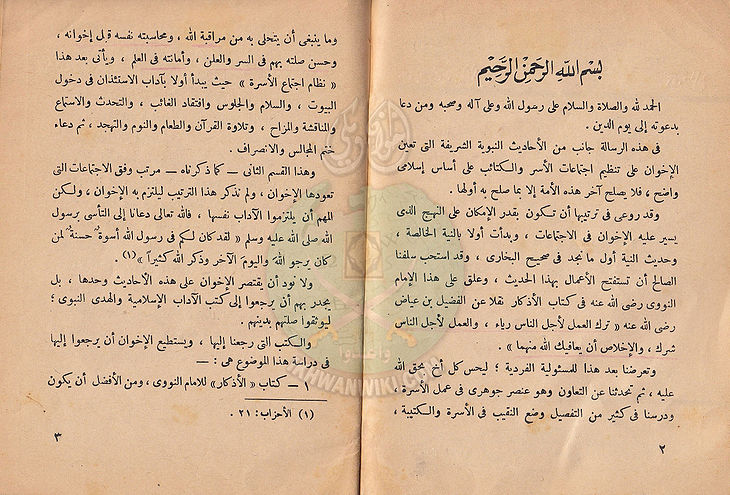 بسم الله الرحمن الرحيم
الحمد لله والصلاة والسلام على رسول الله وعلى آله وصحبه ومن دعا
بدعوته إلى يوم الدين .
فى هذه الرسالة جانب من الأحاديث النبوية الشريفة التى تعين
الإخوان على تنظيم اجتماعات الأسر والكتائب على أساس إسلامى
واضح ، فلا يصلح آخر هذه الأمة إلا بما صلح به أولها .
وقد روعى فى ترتيبها أن تكون بقدر الإمكان على النهج الذى
يسير عليه الإخوان فى الاجتماعات ، وبدأت أولا بالنية الخالصة ،
وحديث النية أول ما نجد فى صحيح البخارى ، وقد استحب سلفنا
الصالح أن تستفتح الأعمال بهذا الحديث ، وعلق على هذا الإمام
النووى رضى الله عنه فى كتاب الأذكار نقلا عن الفضيل بن عياض
رضى الله عنه « ترك العمل لأجل الناس رياء ، والعمل لأجل الناس
شرك ، والإخلاص أن يعافيك الله منهما » .
وتعرضنا بعد هذا للمسئولية الفردية ؛ ليحس كل أخ بحق الله
عليه ، ثم تحدثنا عن التعاون وهو عنصر جوهرى فى عمل الأسرة ،
ودرسنا فى كثير من التفصيل وضع النقيب فى الأسرة والكتيبة ،
٢
وما ينبغى أن يتحلى به من مراقبة الله ، ومحاسبته نفسه قبل إخوانه ،
وحسن صلته بهم فى السر والعلن ، وأمانته فى العلم ، ويأتى بعد هذا
« نظام اجتماع الأسرة » حيث يبدأ أولا بآداب الاستئذان فى دخول
البيوت ، والسلام والجلوس وافتقاد الغائب ، والتحدث والاستماع
والمناقشة والمزاح ، وتلاوة القرآن والطعام والنوم والتهجد ، ثم دعاء
ختم المجالس والانصراف .
وهذا القسم الثانى — كما ذكرناه — مرتب وفق الاجتماعات التى
تعودها الإخوان ، ولم نذكر هذا الترتيب ليلتزم به الإخوان ، ولكن
المهم أن يلتزموا الآداب نفسها ، فالله تعالى دعانا إلى التأسى برسول
الله صلى الله عليه وسلم « لقد كان لكم فى رسول الله أسوة حسنة لمن
كان يرجو الله واليوم الآخر وذكر الله كثيراً » (١) .
ولا نود أن يقتصر الإخوان على هذه الأحاديث وحدها ، بل
يجدر بهم أن يرجعوا إلى كتب الآداب الإسلامية والهدى النبوى ؛
ليوثقوا صلتهم بدينهم .
والكتب التى رجعنا إليها ، ويستطيع الإخوان أن يرجعوا إليها
فى دراسة هذا الموضوع هى : —
١ — كتاب « الأذكار » للامام النووى ، ومن الأفضل أن يكون
(١) الأحزاب : ٢١ .
٣
وأعدوا
IKHWANWIKI.COM